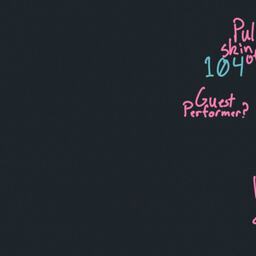 Pul
skin
104
Guest
Performer?